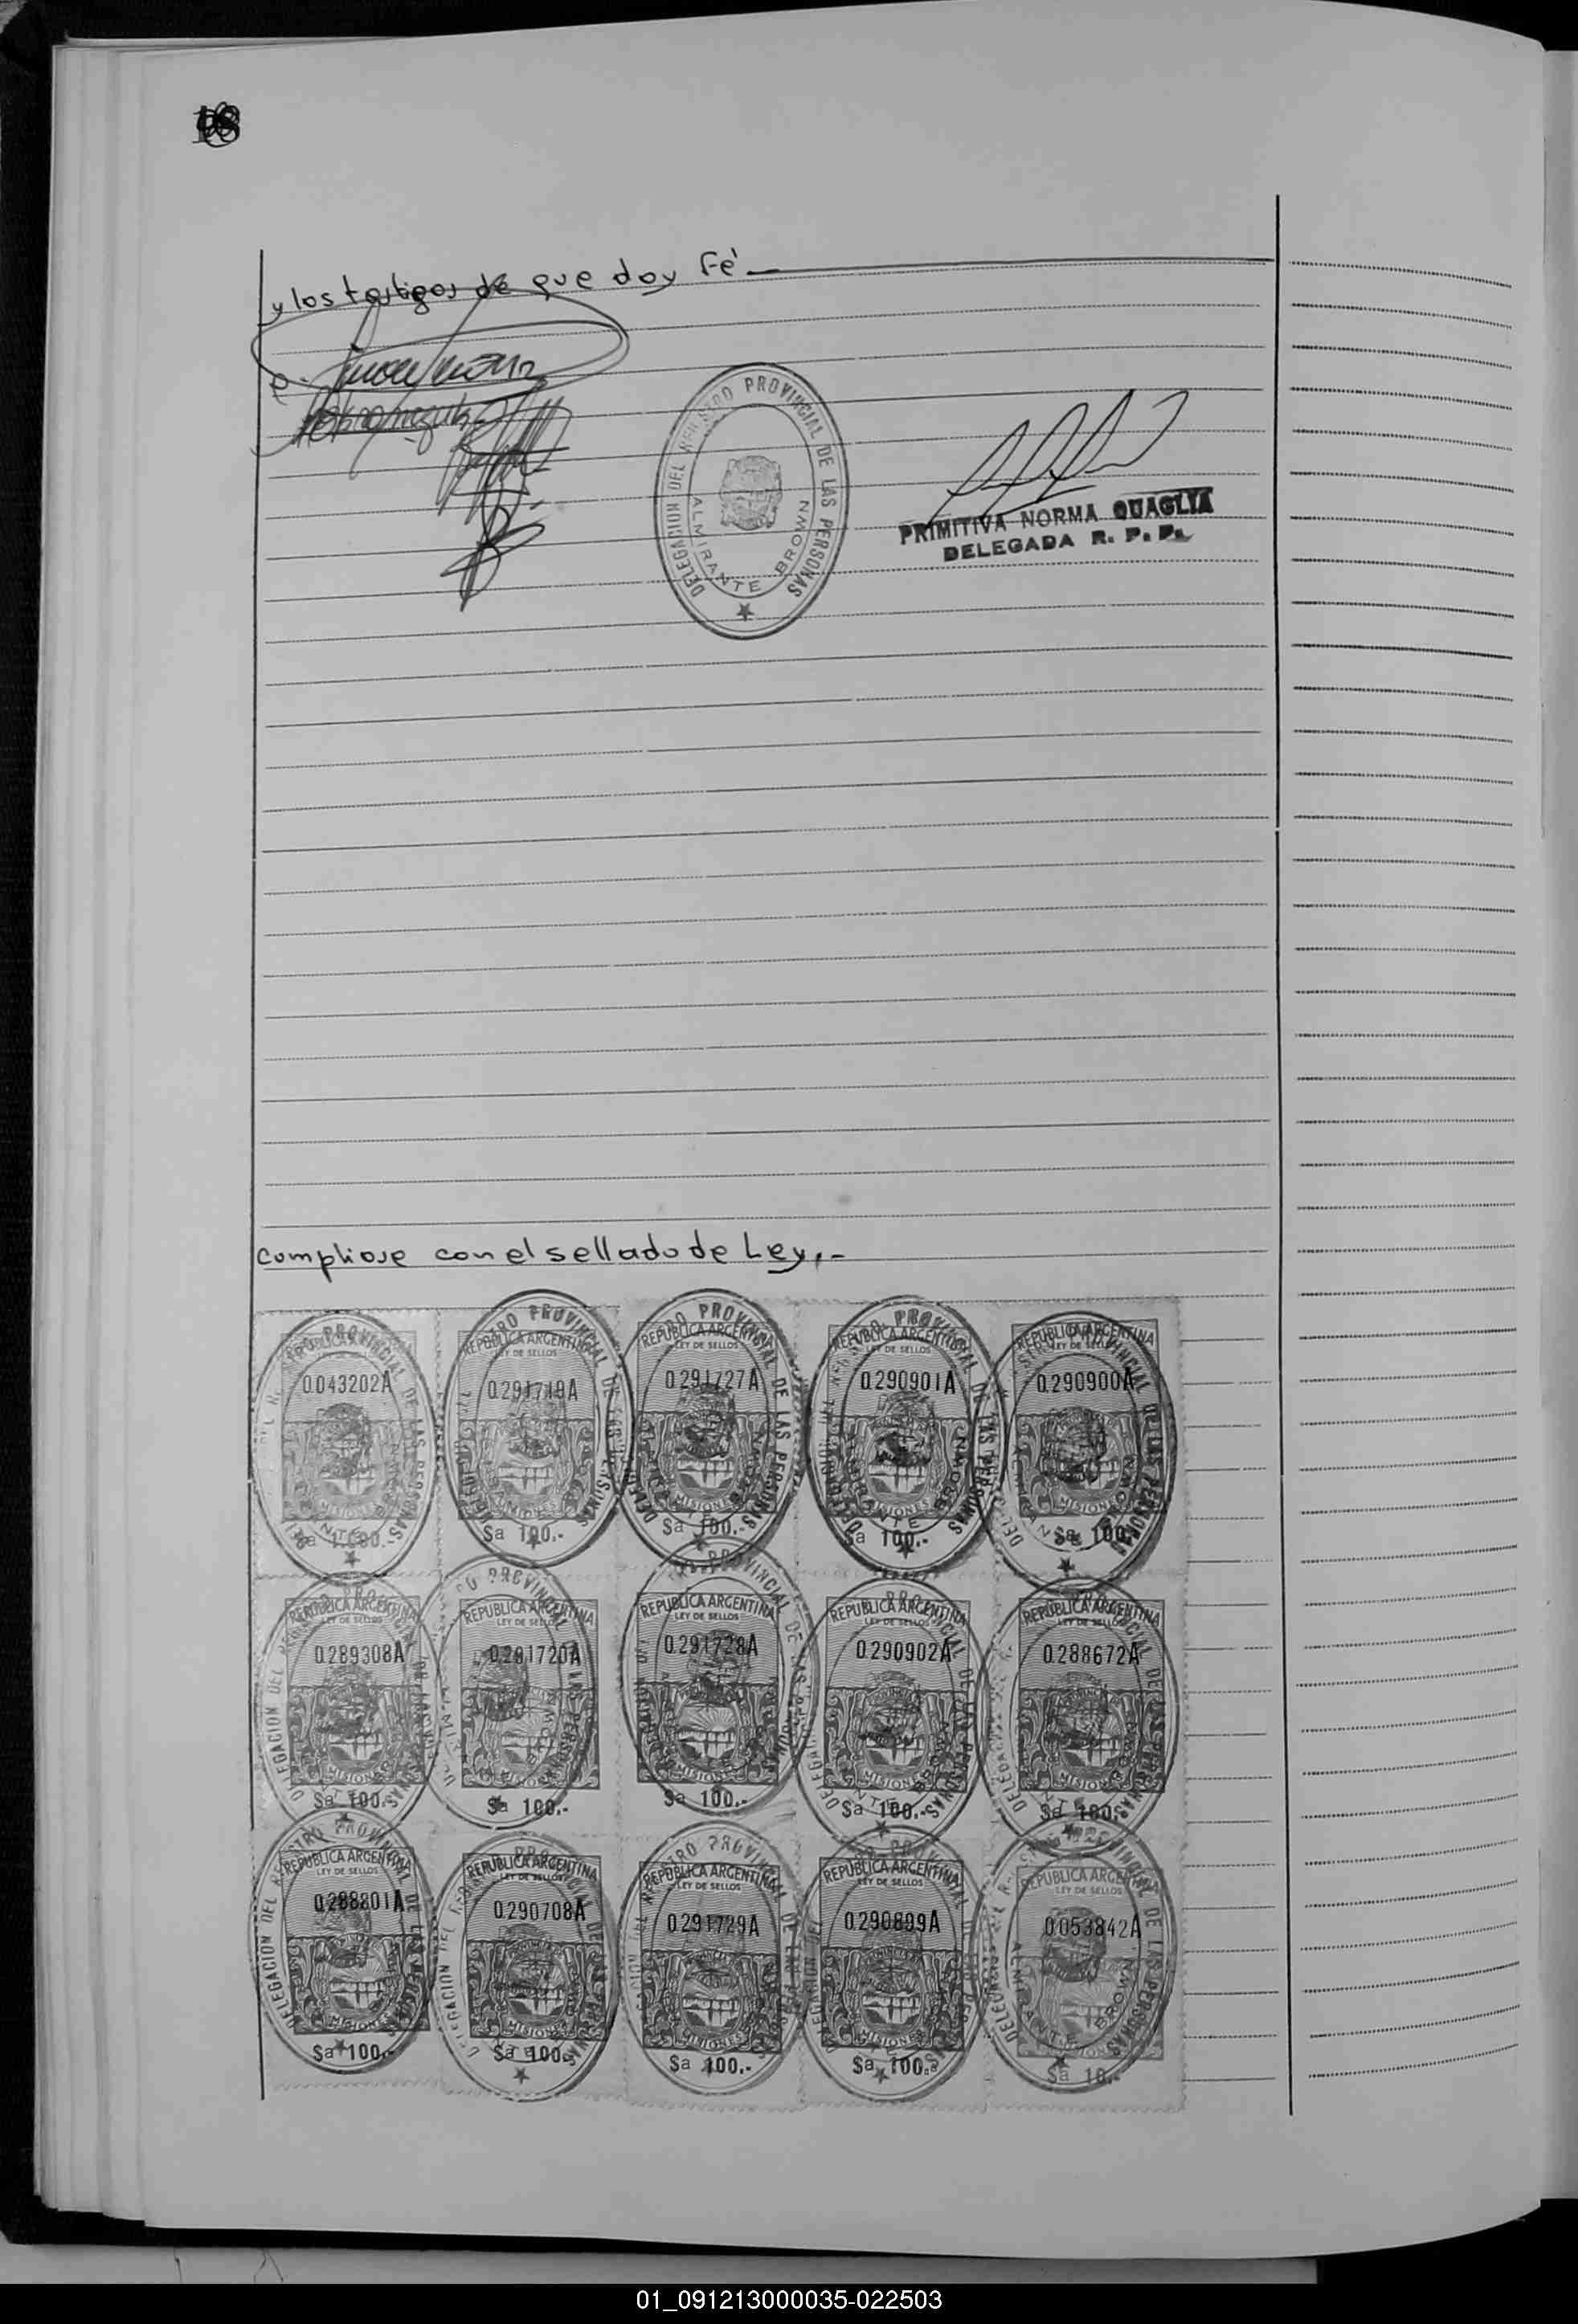 y los testigos de que doy Fé
DELEGACION DEL REGISTRO PROVINCIAL DE LAS PERSONAS
ALMIRANTE BROWN
PRIMITIVA NORMA QUAGLIA
DELEGADA R. P. P.
Compliose con el sellado de Ley.-
REPUBLICA ARGENTINA REPUBLICA ARGENTINA REPUBLICA ARGENTINA REPUBLICA ARGENTINA REPUBLICA ARGENTINA
LEY DE SELLOS LEY DE SELLOS LEY DE SELLOS LEY DE SELLOS
0.043202A 0.291719A 0.291727A 0.290901A 0.290900A
MISIONES MISIONES MISIONES MISIONES MISIONES
$a 1.000.- $a 100.- $a 100.- $a 100.- $a 100.-
REPUBLICA ARGENTINA REPUBLICA ARGENTINA REPUBLICA ARGENTINA REPUBLICA ARGENTINA REPUBLICA ARGENTINA
LEY DE SELLOS LEY DE SELLOS LEY DE SELLOS LEY DE SELLOS LEY DE SELLOS
0.289308A 0.291720A 0.291728A 0.290902A 0.288672A
MISIONES MISIONES MISIONES MISIONES MISIONES
$a 100.- $a 100.- $a 100.- $a 100.- $a 100.-
REPUBLICA ARGENTINA REPUBLICA ARGENTINA REPUBLICA ARGENTINA REPUBLICA ARGENTINA REPUBLICA ARGENTINA
LEY DE SELLOS LEY DE SELLOS LEY DE SELLOS LEY DE SELLOS LEY DE SELLOS
0.288801A 0.290708A 0.291729A 0.290899A 0.053842A
MISIONES MISIONES MISIONES MISIONES MISIONES
$a 100.- $a 100.- $a 100.- $a 100.- $a 10.-
01_091213000035-022503